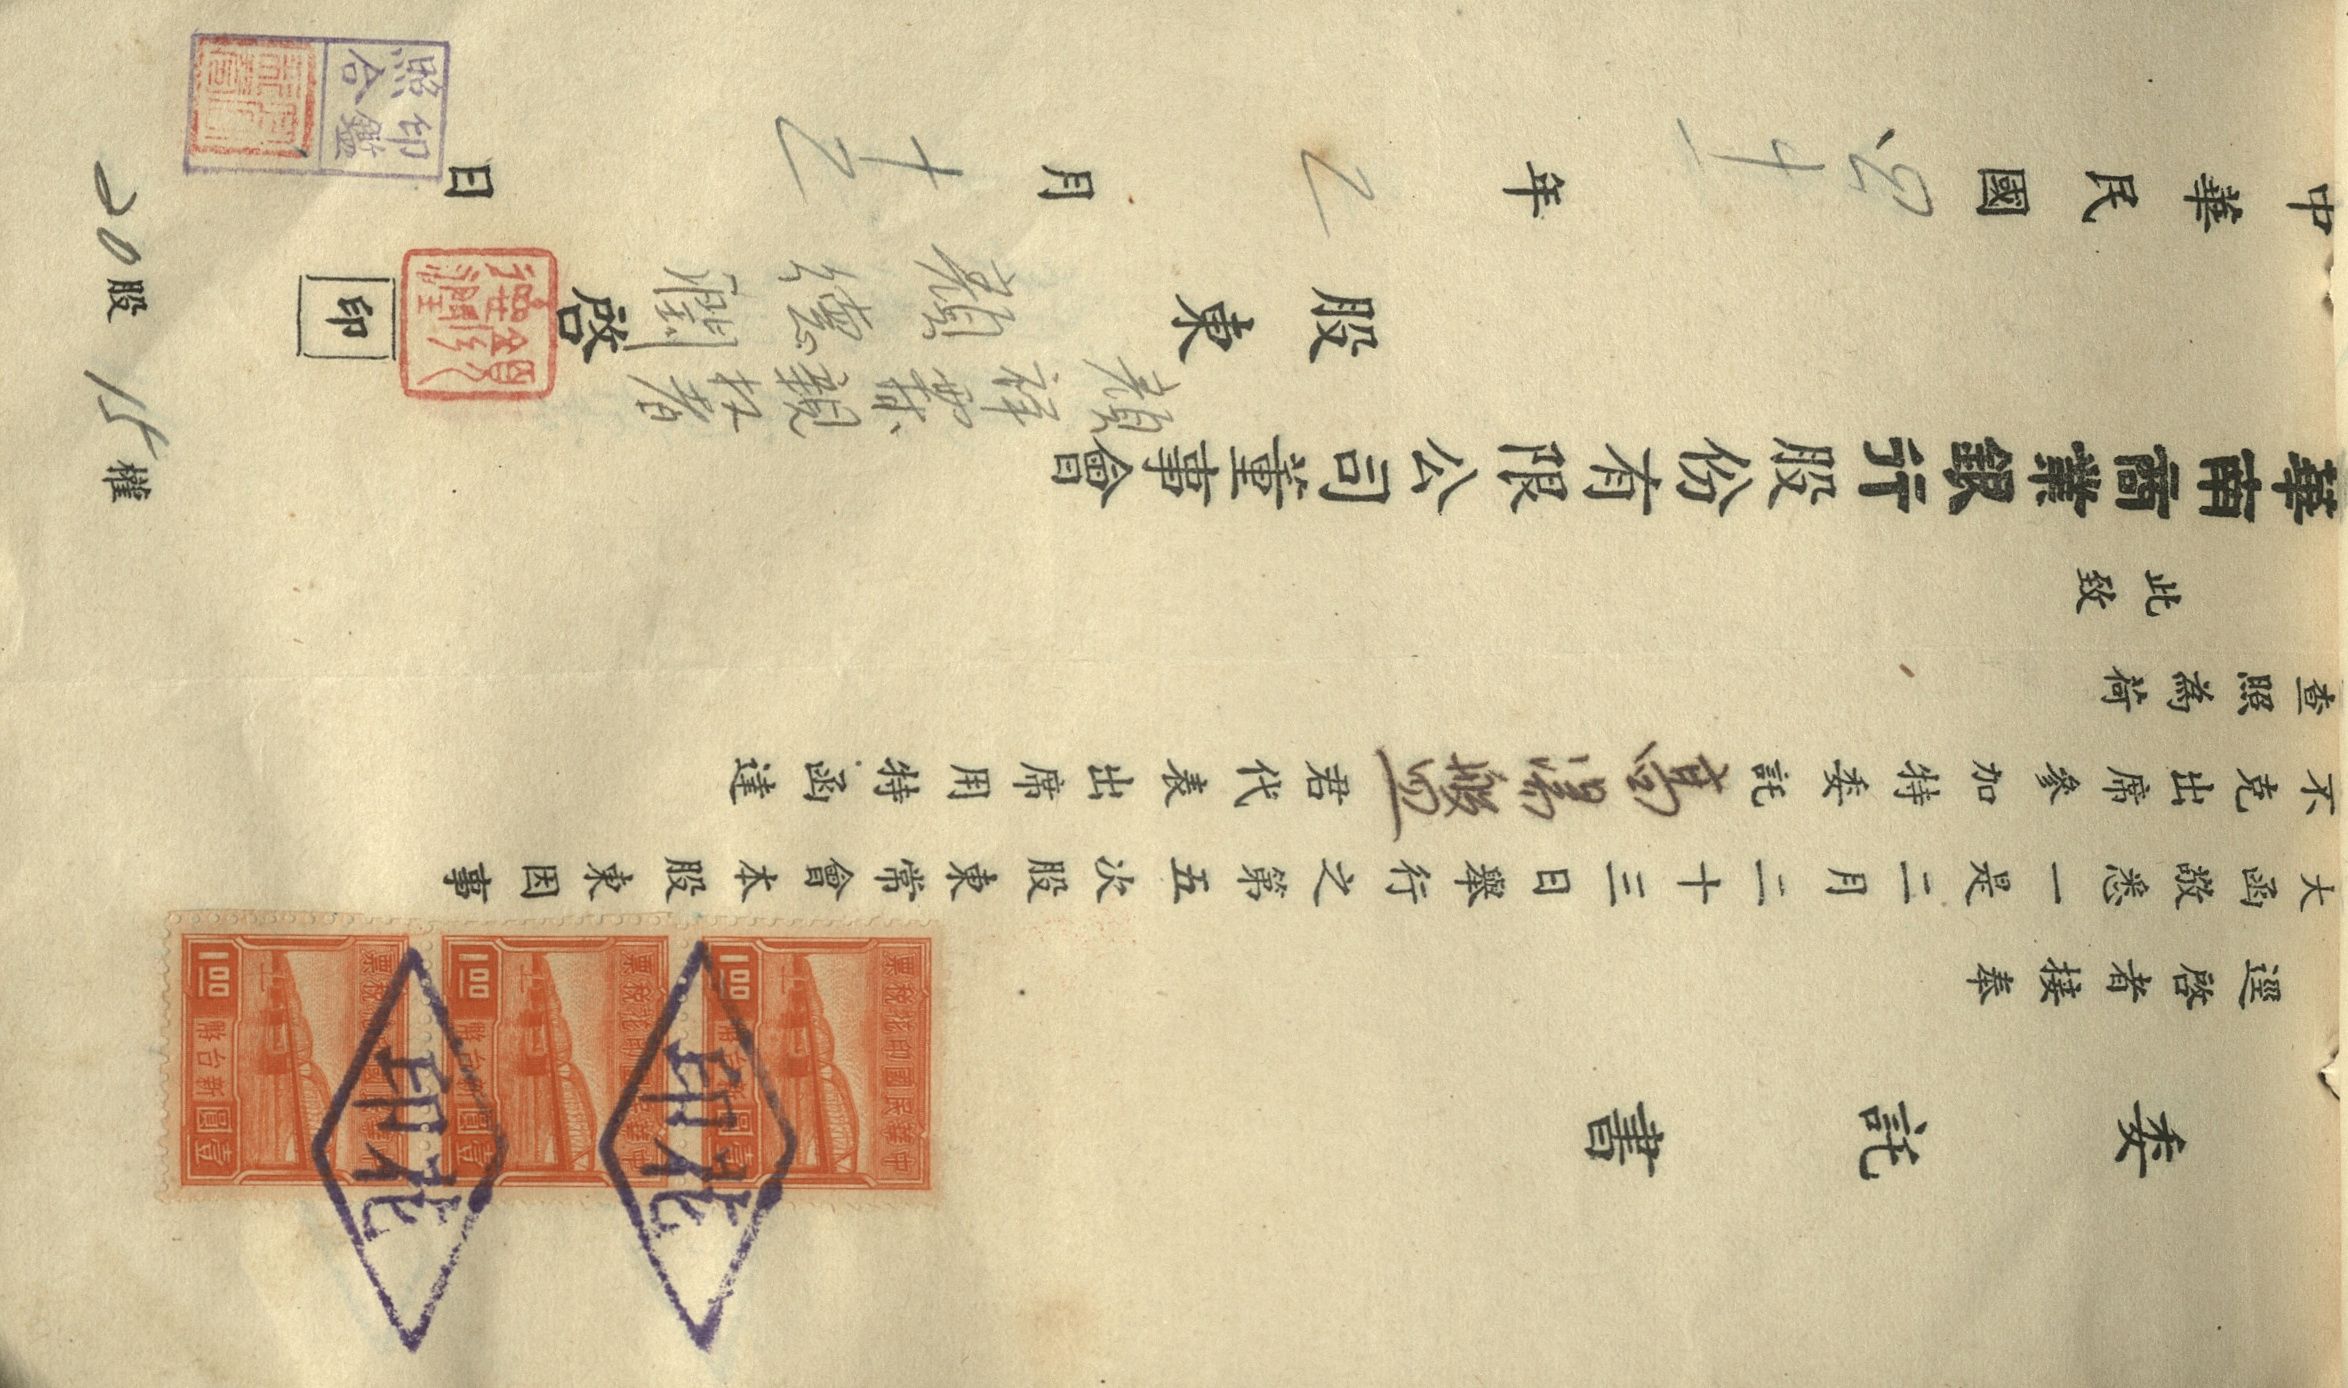 委託書
逕啓者接奉
大函敬悉一是二月二十三日舉行之第五次股東常會本股東因事
不克出席參加特委託高湯盤君代表出席用特函達
查照為荷
此致
華南商業銀行股份有限公司董事會
股東
顏德潤 啓 印
顏 親权者
中華民國四十一年2月十2日
20股 15權
印鑑
照合
中華民國印花稅票
壹圓
新台幣
1.00
中華民國印花稅票
壹圓
新台幣
1.00
壹圓
新台幣
1.00
印花
印花